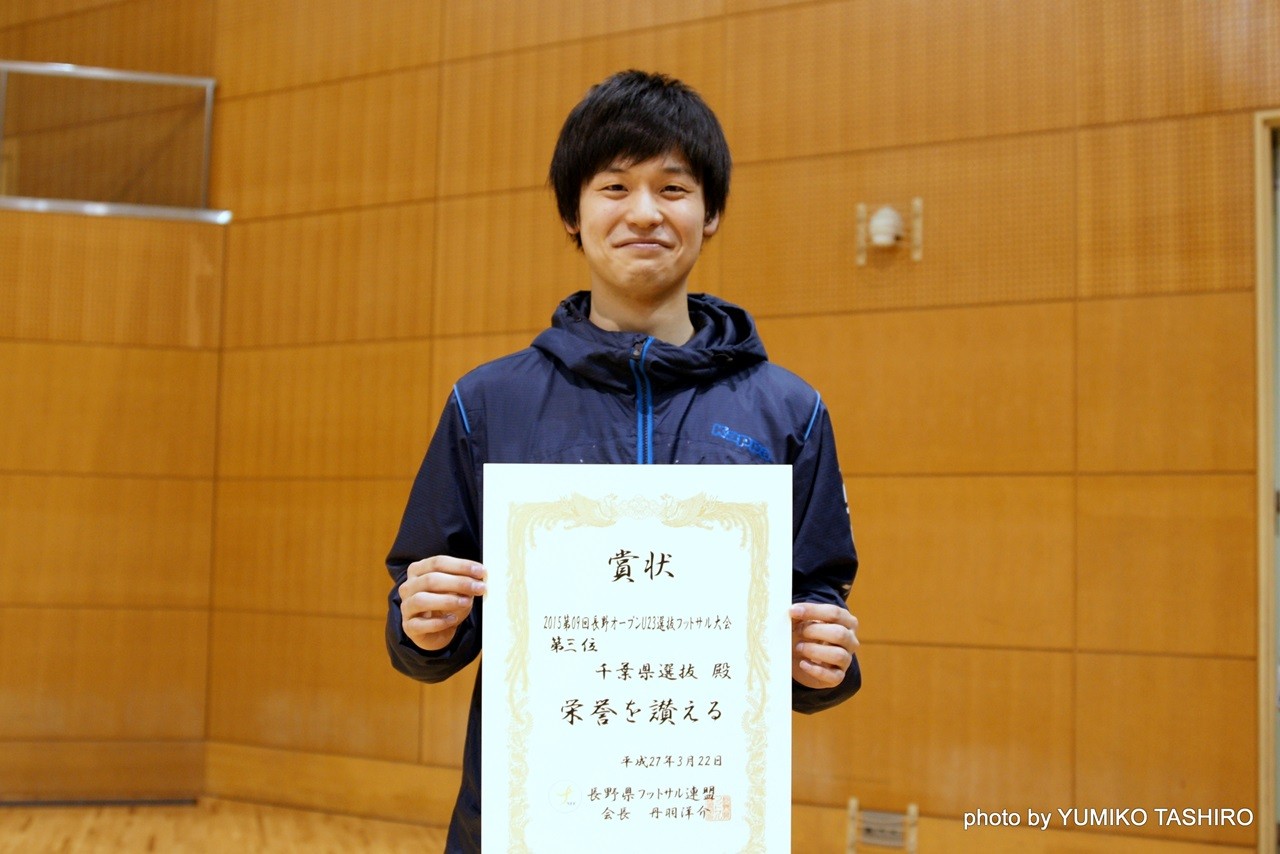 Kappa
賞状
2015第09回長野オープンU23選抜フットサル大会
第三位
千葉県選抜 殿
栄誉を讃える
平成27年3月22日
長野県フットサル連盟
会長 丹羽洋介
photo by YUMIKO TASHIRO